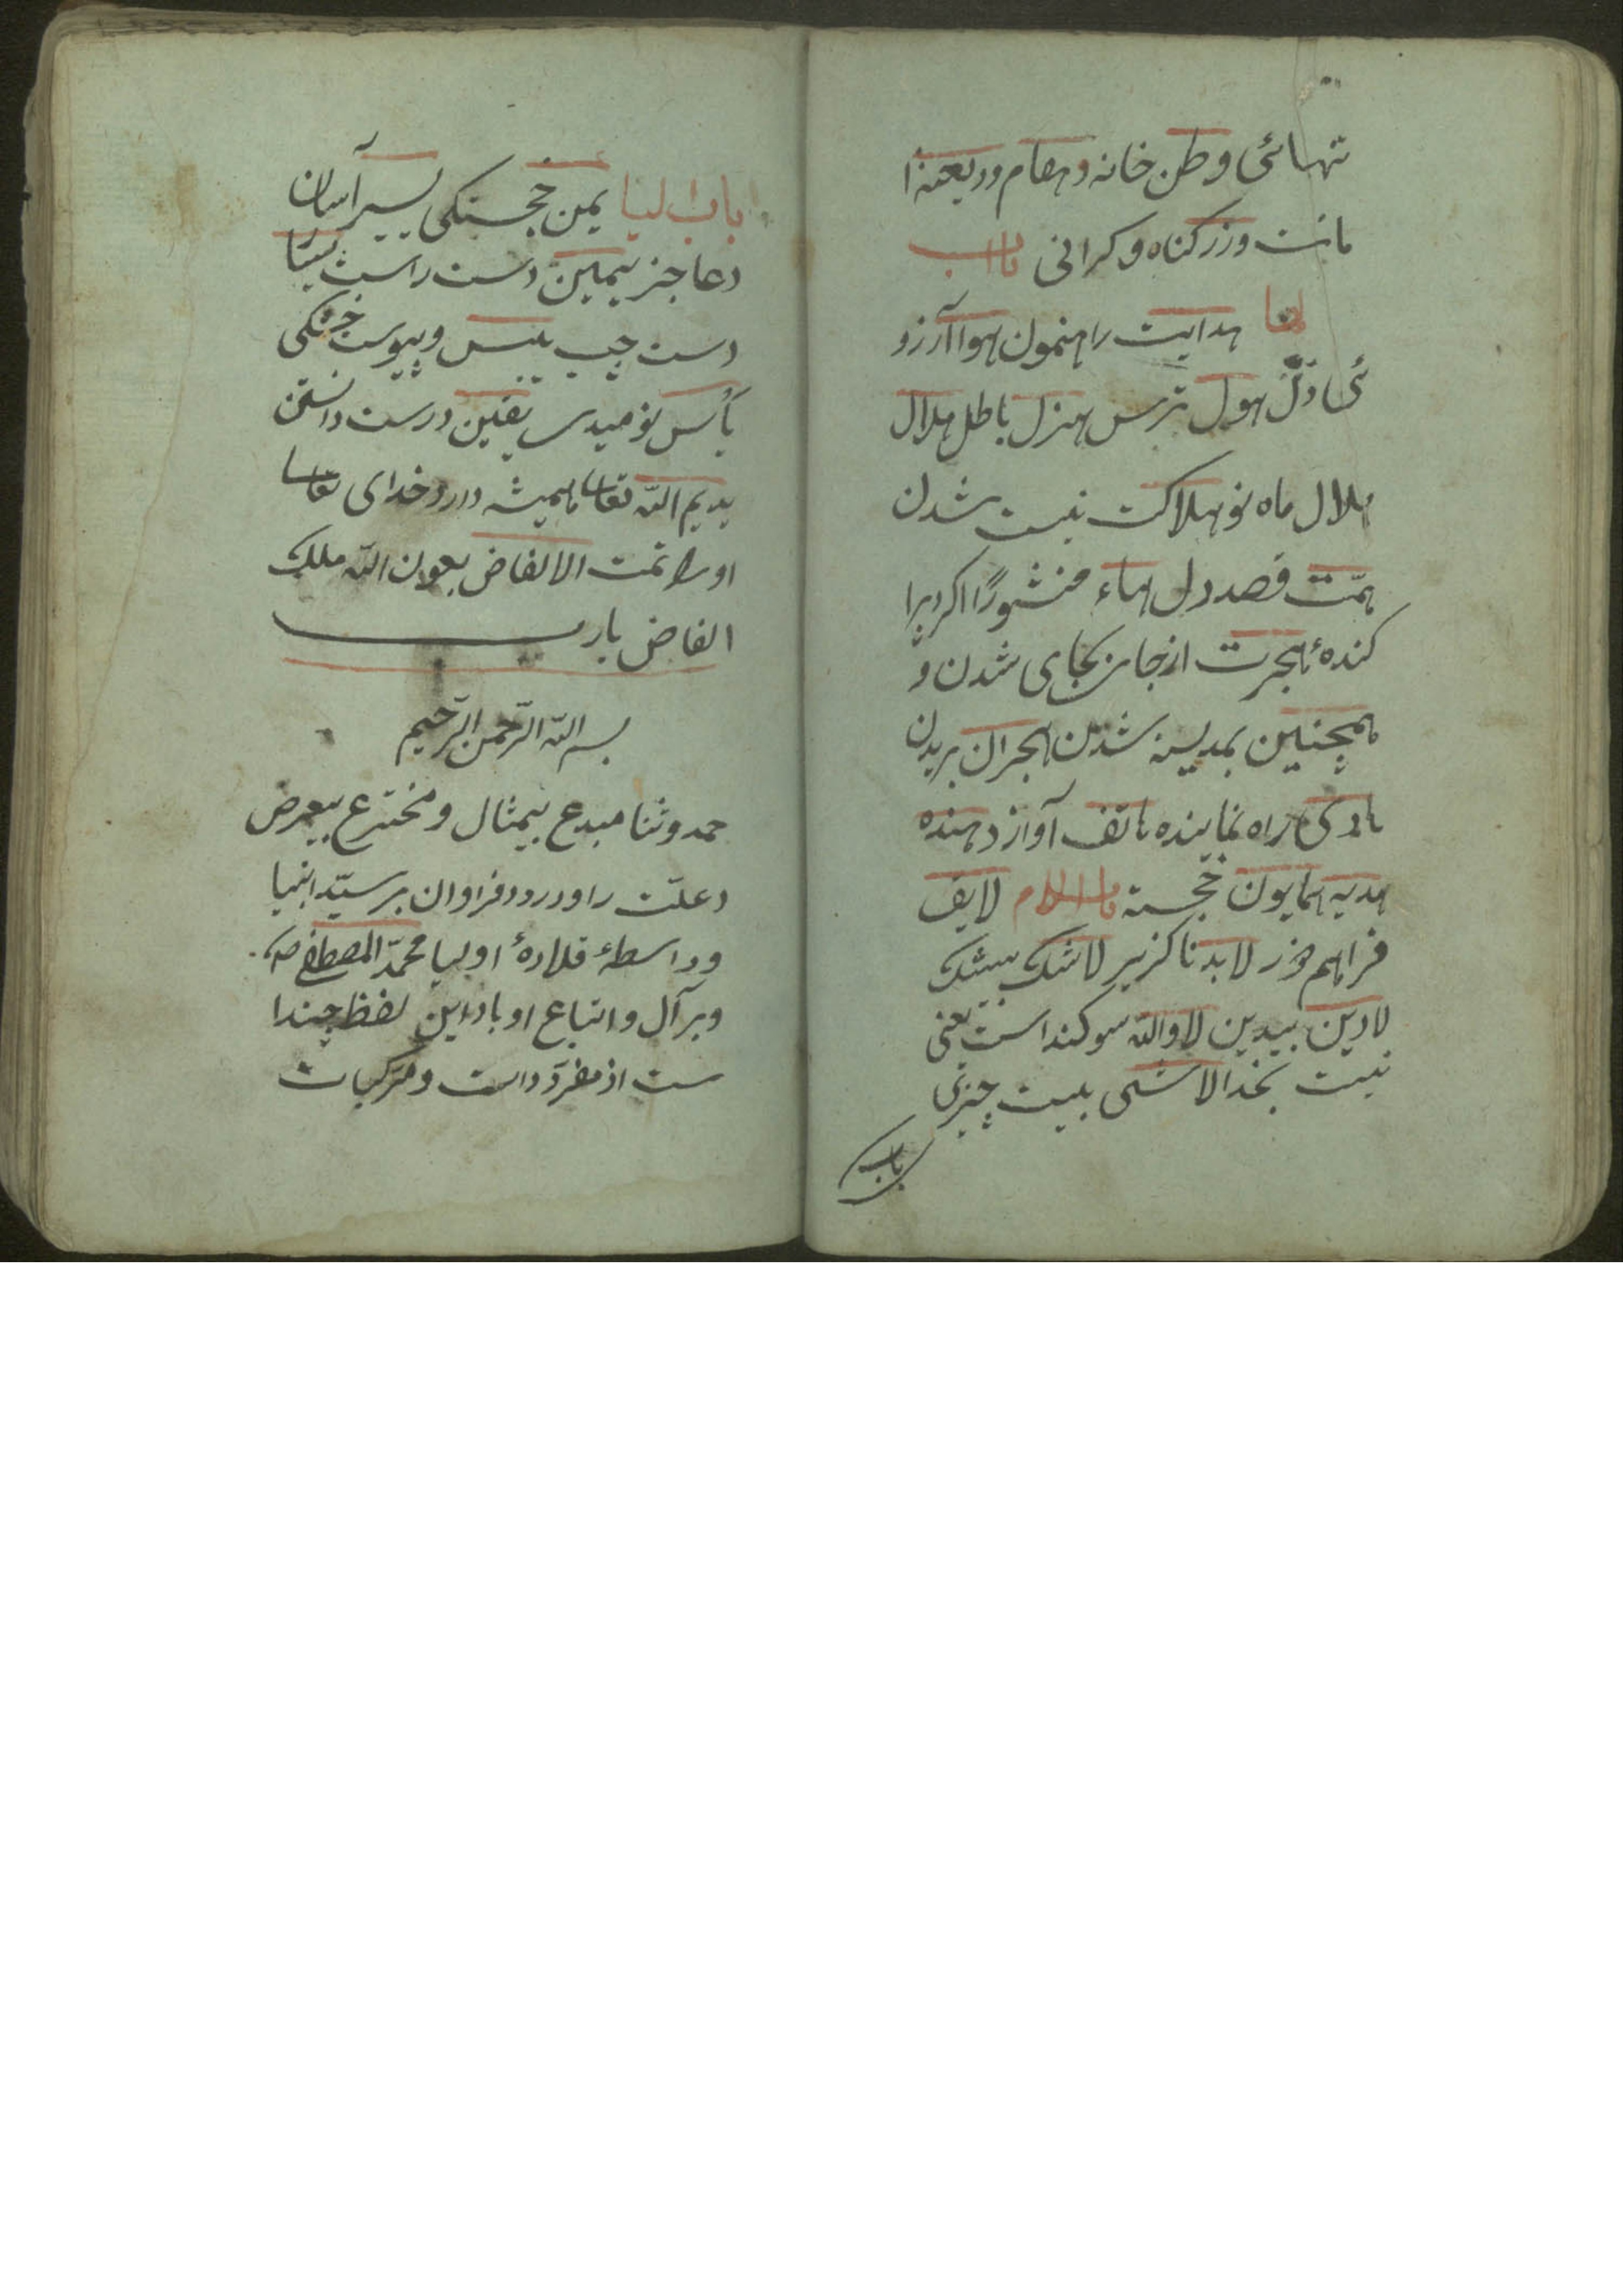 تنهائی وطن خانه ومقام وديعه ا
مانت وزر کناه و کرانی باب
الها هدايت راهنمون هوا آرزو
ئی دل هول ترس هزل باطل هلال
هلال ماه نو هلاکت نيست شدن
همّت قصد دل هباء منثورًا کرد پرا
کنده هجرت از جای بجای شدن و
همچنين بمدينه شدن هجران بريدن
هادی راه نماينده هاتف آواز دهنده
هديه همايون خجسته باب اللام لايق
فراهم خور لابد ناکزير لاشک بيشک
لادين بيدين لا والله سوکند است يعنی
نيست بخدا لاشی نيست چيزی
باب
باب اليا يمن خجستکی يسير آسان
دعا جز يمين دست راست يسا
دست چپ يبس و يبوست خشکی
يأس نوميدی يقين درست دانستن
يديم الله تعالی هميشه دارد خدای تعالی
اورا تمت الالفاض بعون الله ملک
الفاض يارب
بسم الله الرّحمن الرّحيم
حمد وثنا مبدع بيمثال و مخترع بيغرض
وعلّت را ودرود فراوان بر سيّد انبيا
وواسطهٔ قلادهٔ اوليا محمّد المصطفی
وبر آل و اتباع او باد اين لفظ چندا
ست از مفردات و مرکبات